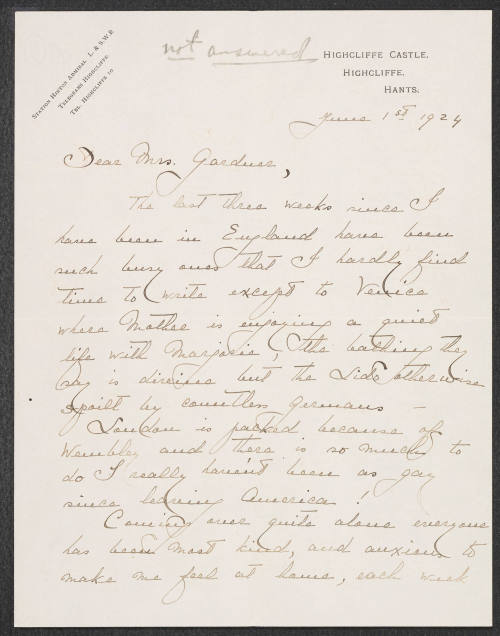 Station Hinton Admiral L. & S.W.R.
Telegrams Highcliffe.
Tel. Highcliffe 10
not answered
Highcliffe Castle.
Highcliffe.
Hants.
June 1st 1924
Dear Mrs. Gardner,
The last three weeks since I
have been in England have been
such busy ones that I hardly find
time to write except to Venice
where Mother is enjoying a quiet
life with Marjorie, the bathing they
say is divine but the Lido otherwise
spoilt by countless germans –
London is packed because of
Wembley and there is so much to
do I really haven't been as gay
since leaving America!
Coming over quite alone everyone
has been most kind, and anxious to
make me feel at home, each week